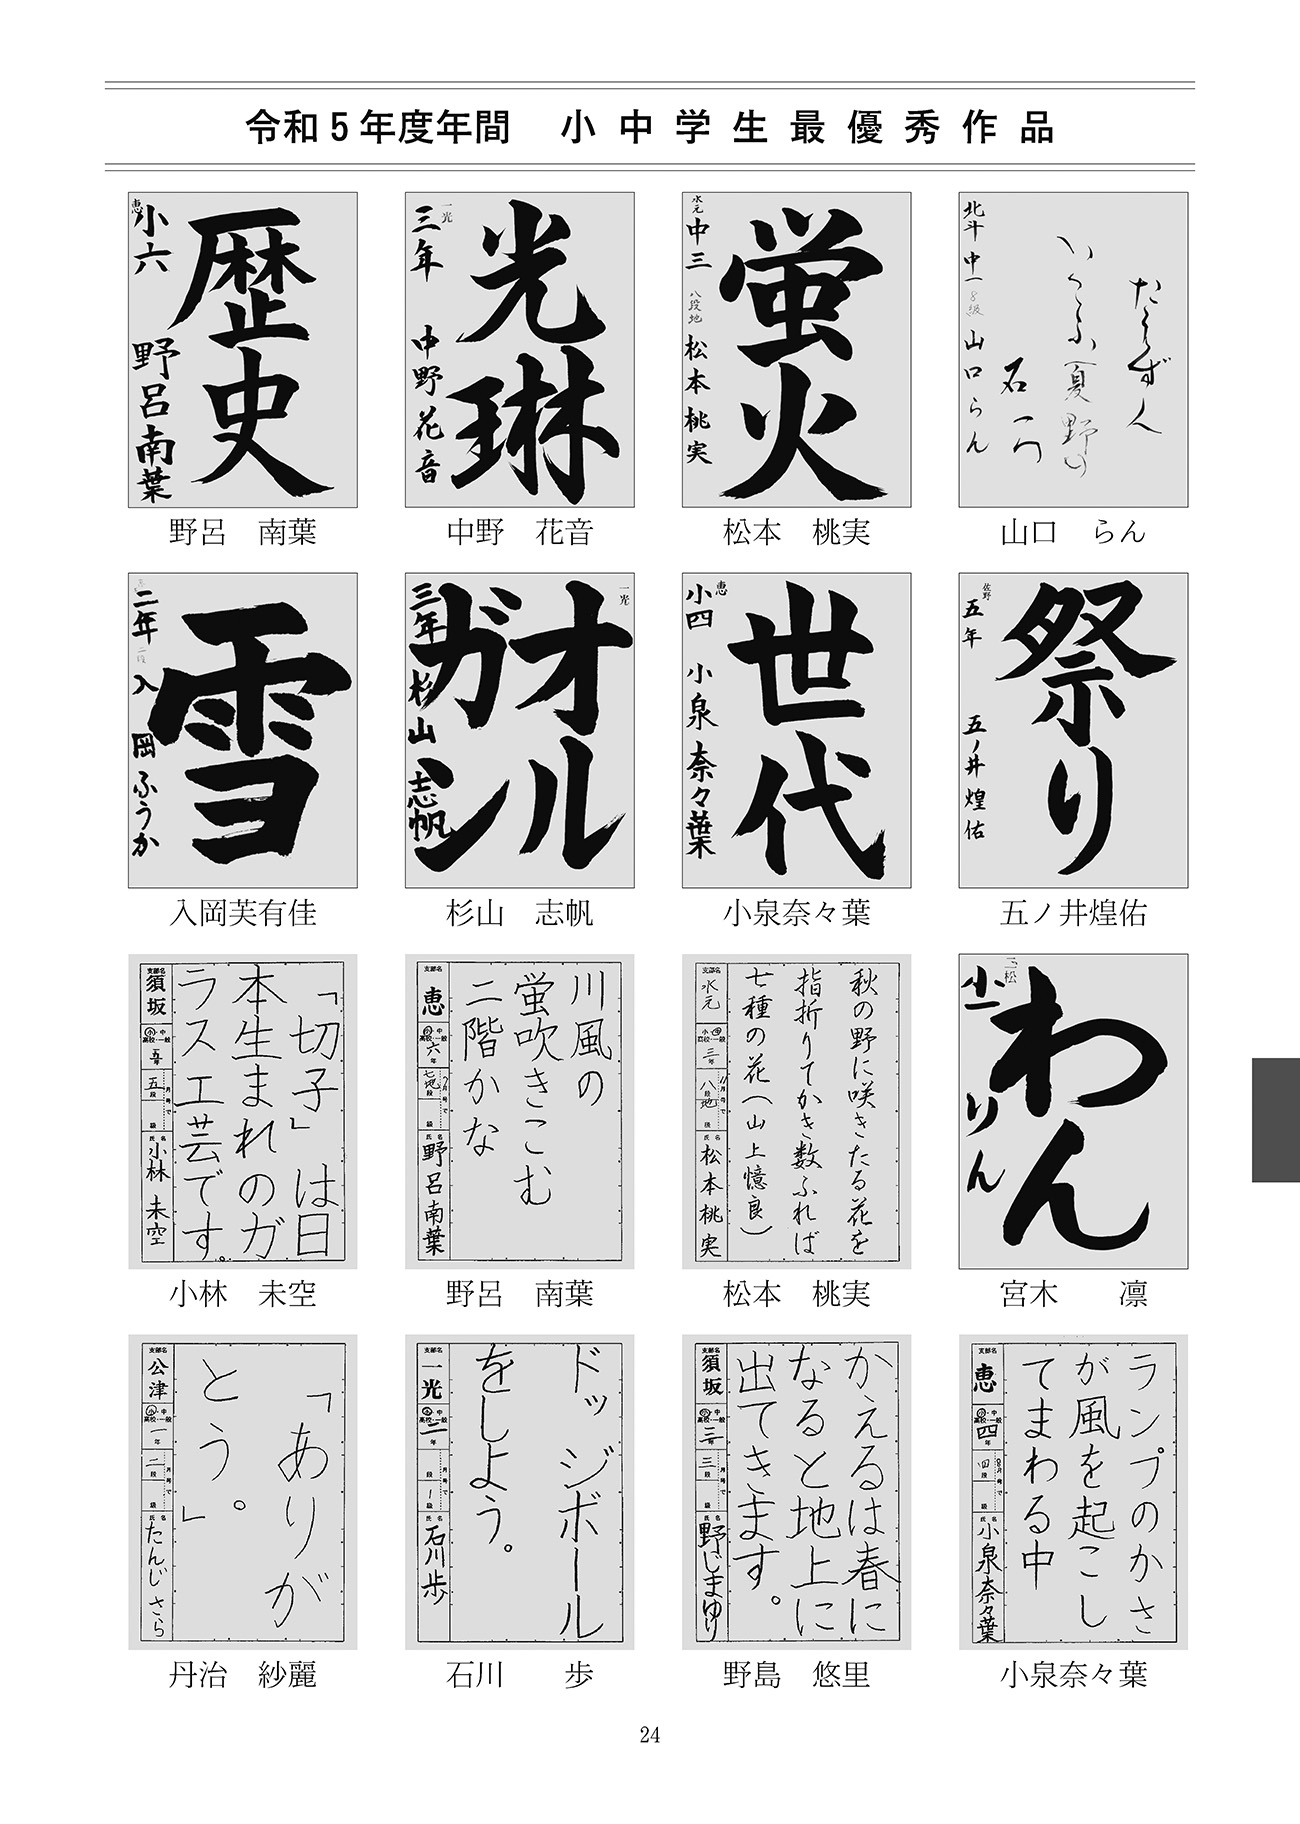 令和5年度年間　小中学生最優秀作品
恵
小六　野呂南葉
歴史
野呂　南葉
一光
三年　中野花音
光琳
中野　花音
水元
中三　八段地　松本桃実
蛍火
松本　桃実
北斗　中一　8級　山口らん
たらずん
いくらふ（夏野の
山口　らん
二年　二段　入岡ふうか
雪
入岡芙有佳
一光
オル
ガン
三年　杉山志帆
杉山　志帆
恵
小四　小泉奈々葉
世代
小泉奈々葉
佐野
五年　五ノ井煌佑
祭り
五ノ井煌佑
「切子」は日
本生まれのガ
ラス工芸です。
支部名　須坂
小・中
高校・一般
五年
五段
月号で
級
氏名　小林未空
小林　未空
川風の
蛍吹きこむ
二階かな
支部名　恵
小・中
高校・一般
六年
七地段
月号で
級
氏名　野呂南葉
野呂　南葉
秋の野に咲きたる花を
指折りてかき数ふれば
七種の花（山上憶良）
支部名　水元
小・中
高校・一般
三年
八段地
11月号で
級
氏名　松本桃実
松本　桃実
三松
小一　りん
わん
宮木　凛
「ありが
とう。」
支部名　公津
小・中
高校・一般
一年
二段
月号で
級
氏名　たんじさら
丹治　紗麗
ドッジボール
をしよう。
支部名　一光
小・中
高校・一般
二年
段
月号で
1級
氏名　石川歩
石川　歩
かえるは春に
なると地上に
出てきます。
支部名　須坂
小・中
高校・一般
三年
三段
月号で
級
氏名　野じまゆり
野島　悠里
ランプのかさ
が風を起こし
てまわる中
支部名　恵
小・中
高校・一般
四年
四段
月号で
級
氏名　小泉奈々葉
小泉奈々葉
24